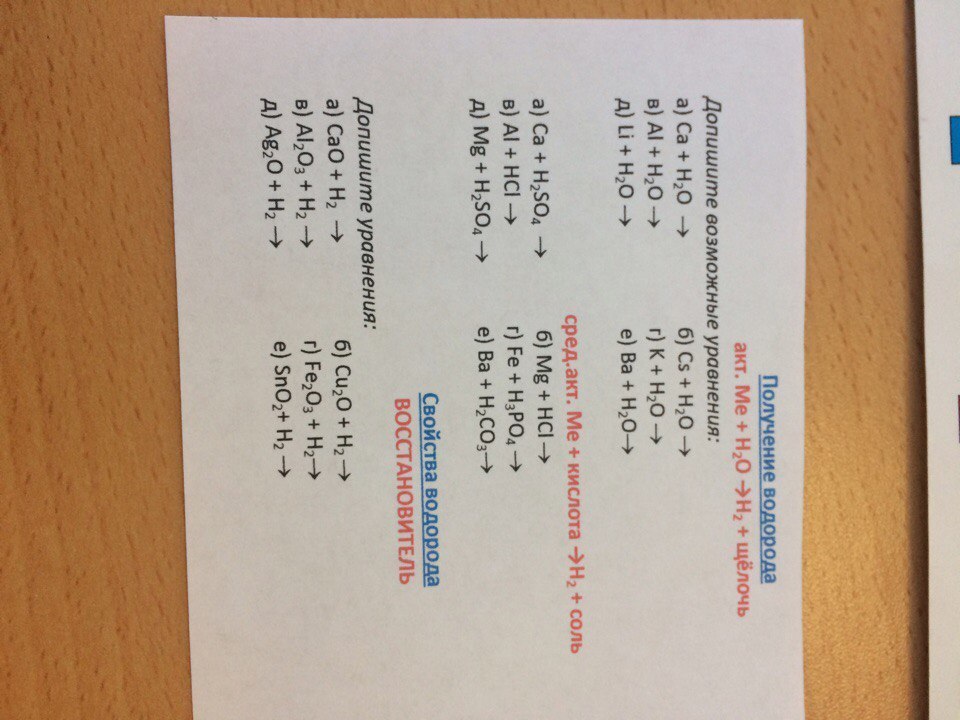 Получение водорода
акт. Ме + H₂O →H₂ + щёлочь
Допишите возможные уравнения:
а) Ca + H₂O → б) Cs + H₂O →
в) Al + H₂O → г) K + H₂O →
д) Li + H₂O → е) Ba + H₂O→
сред.акт. Ме + кислота →H₂ + соль
а) Ca + H₂SO₄ → б) Mg + HCl→
в) Al + HCl → г) Fe + H₃PO₄ →
д) Mg + H₂SO₄ → е) Ba + H₂CO₃→
Свойства водорода
ВОССТАНОВИТЕЛЬ
Допишите уравнения:
а) CaO + H₂ → б) Cu₂O + H₂→
в) Al₂O₃ + H₂ → г) Fe₂O₃ + H₂→
д) Ag₂O + H₂ → е) SnO₂+ H₂ →